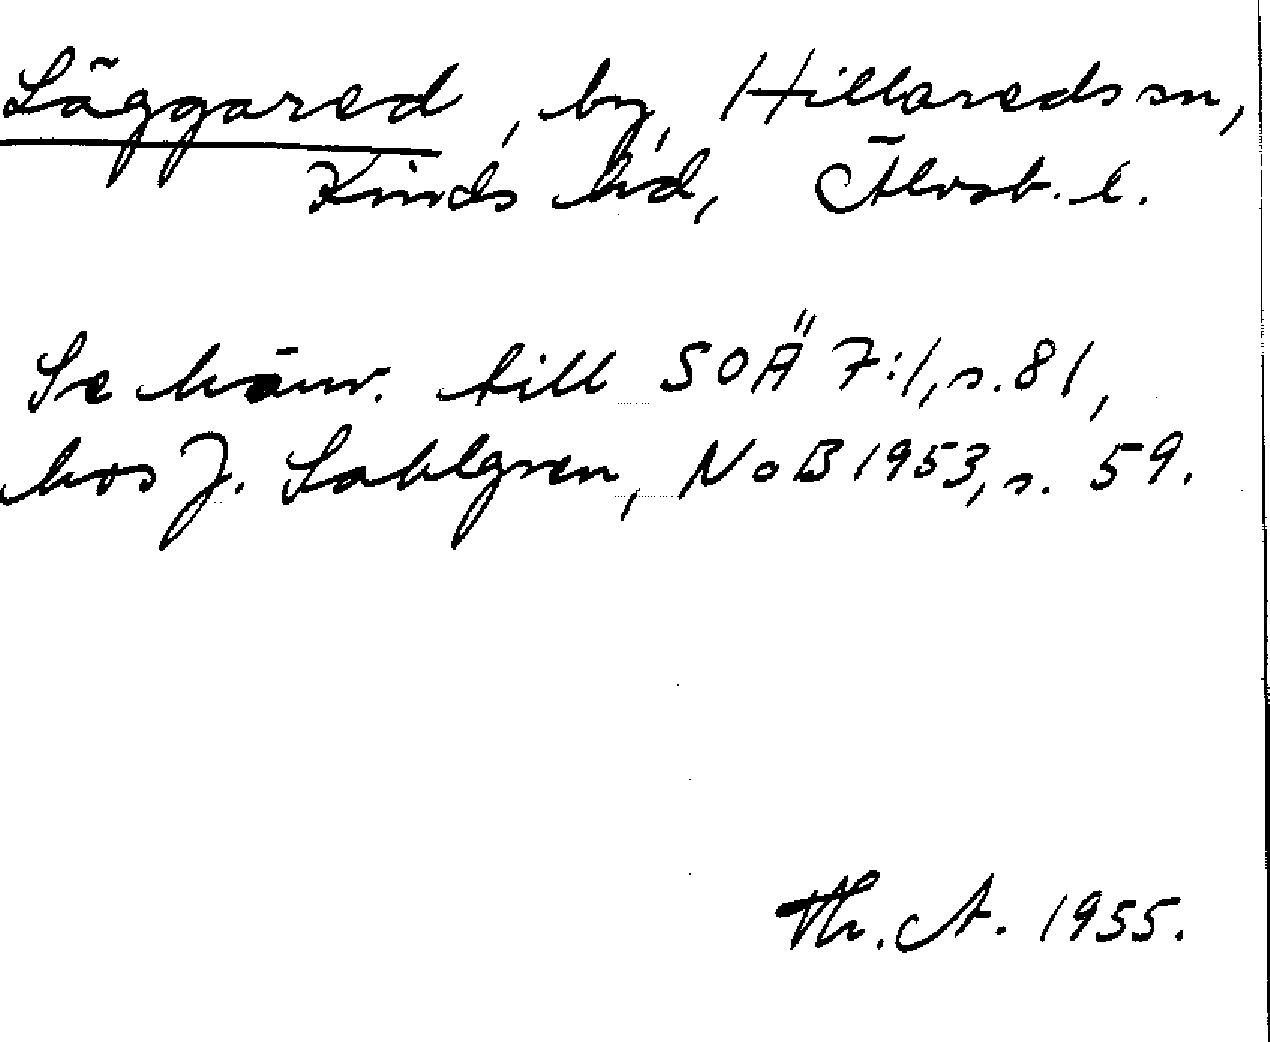 Läggared, by, Hillareds sn,
Kinds hd, Älvsb. l.
Se hänv. till SOÄ 7:1, s. 81,
hos J. Sahlgren, NoB 1953, s. 59.
Th. A. 1955.